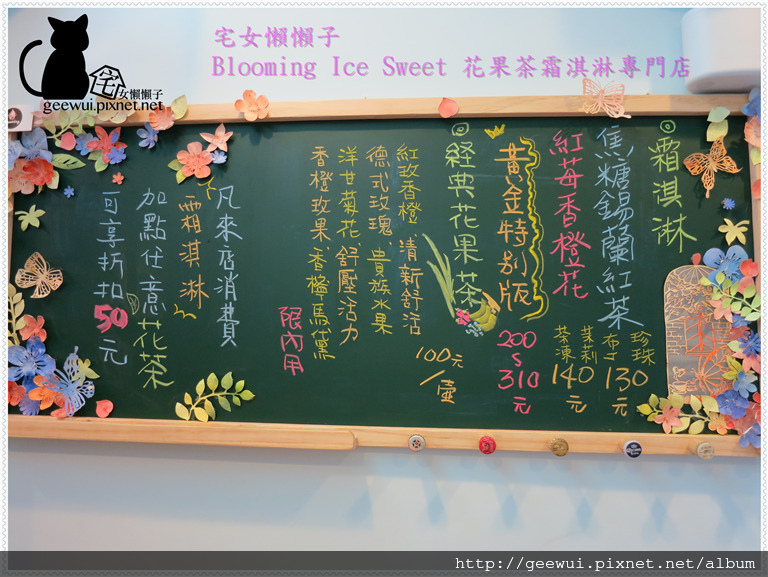 宅女懶懶子
Blooming Ice Sweet 花果茶霜淇淋專門店
宅女懶懶子
geewui.pixnet.net
◎霜淇淋
焦糖錫蘭紅茶 珍珠 布丁 130元
紅莓香橙花 茉莉茶凍 140元
黃金特別版 200~310元
◎經典花果茶 100元/壺
紅玫香橙、清新舒活
德式玫瑰、貴族水果
洋甘菊花、舒壓活力
香橙玫果、香檸馬黛
限內用
凡來店消費
霜淇淋
加點任意花茶
可享折扣50元
http://geewui.pixnet.net/album